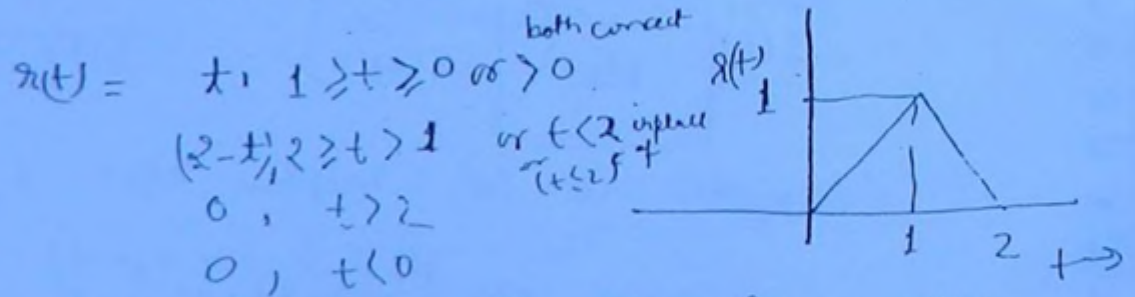 both correct
r(t) = t, 1 ≥ t ≥ 0 or > 0
(2-t), 2 ≥ t > 1 or t < 2 inplace of
or (t ≤ 2)
0, t > 2
0, t < 0
r(t)
1
1 2 t →